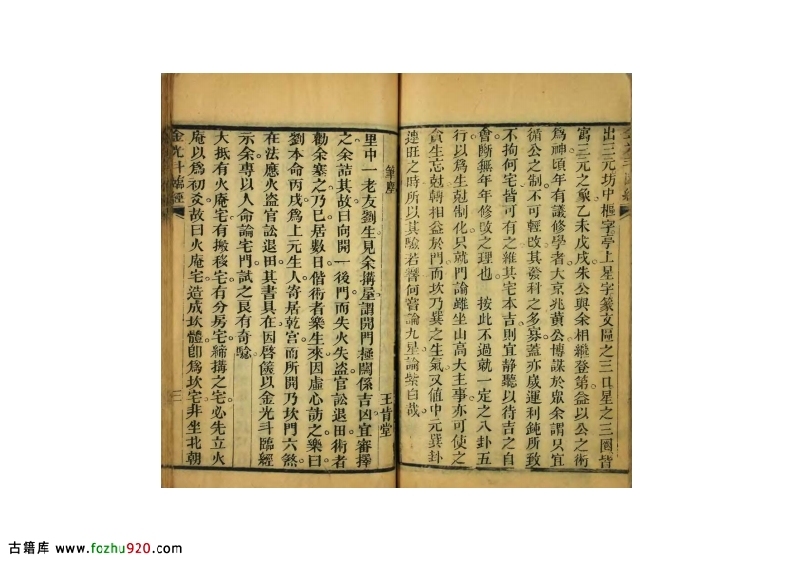 出三元坊中樞字亭上星字篆文區之三口星之三圈皆
寓三元之象乙未戊戌朱公與余相繼登第益以公之術
爲神頃年有議修學者大京兆黃公博謀於眾余謂只宜
循公之制不可輕改其發科之多寡蓋亦歲運利鈍所致
不拘何宅皆可有之雖其宅本吉則宜靜聽以待吉之自
會斷無年年修改之理也 按此不過就一定之八卦五
行以爲生尅制化只就門論雖坐山高大主事亦可使之
貪生忘尅轉相益於門而坎乃巽之生氣又值中元巽卦
連旺之時所以其驗若響何嘗論九星論紫白哉
筆麈 王肯堂
里中一老友劉生見余搆屋謂開門極關係吉凶宜審擇
之余詰其故曰向開一後門而失火失盜官訟退田術者
勸余塞之乃已居數日偕術者樂生來因虛心訪之樂曰
劉本命丙戌爲上元生人寄居乾宮而所開乃坎門六煞
在法應火盜官訟退田其書具在因啓篋以金光斗臨經
示余專以人命論宅門試之良有奇驗
大抵有火庵宅有搬移宅有分房宅締搆之宅必先立火
庵以爲初爻故曰火庵宅造成坎體卽爲坎宅非坐北朝
金光斗臨經
三
古籍库 www.fozhu920.com